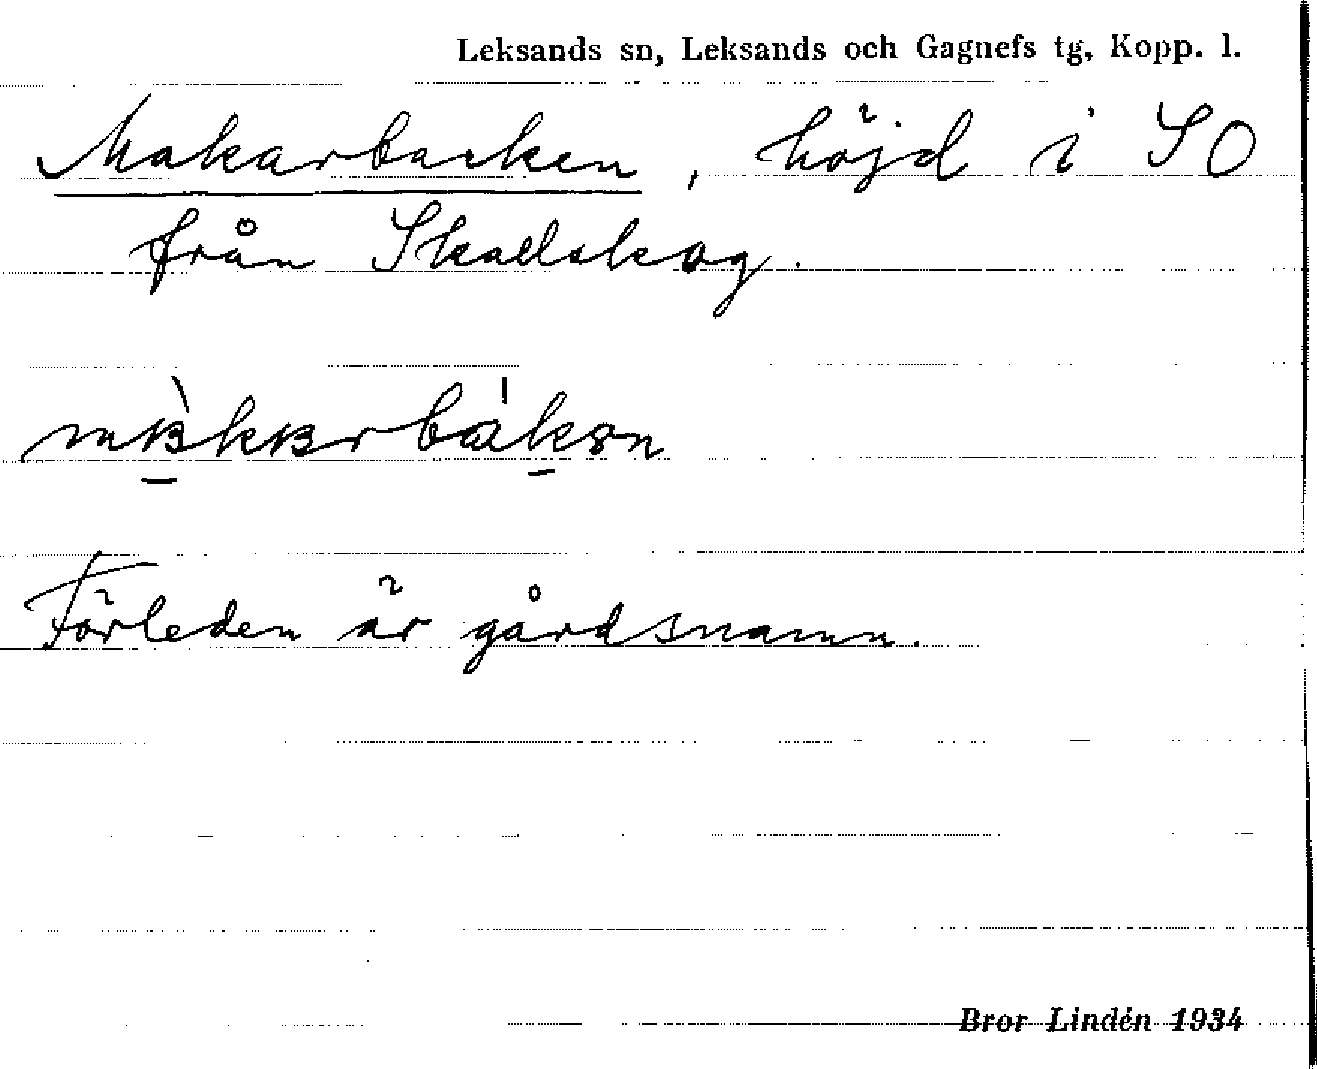 Leksands sn, Leksands och Gagnefs tg, Kopp. l.
Makarbacken, höjd i SO
från Skallskog.
Förleden är gårdsnamn.
Bror Lindén 1934